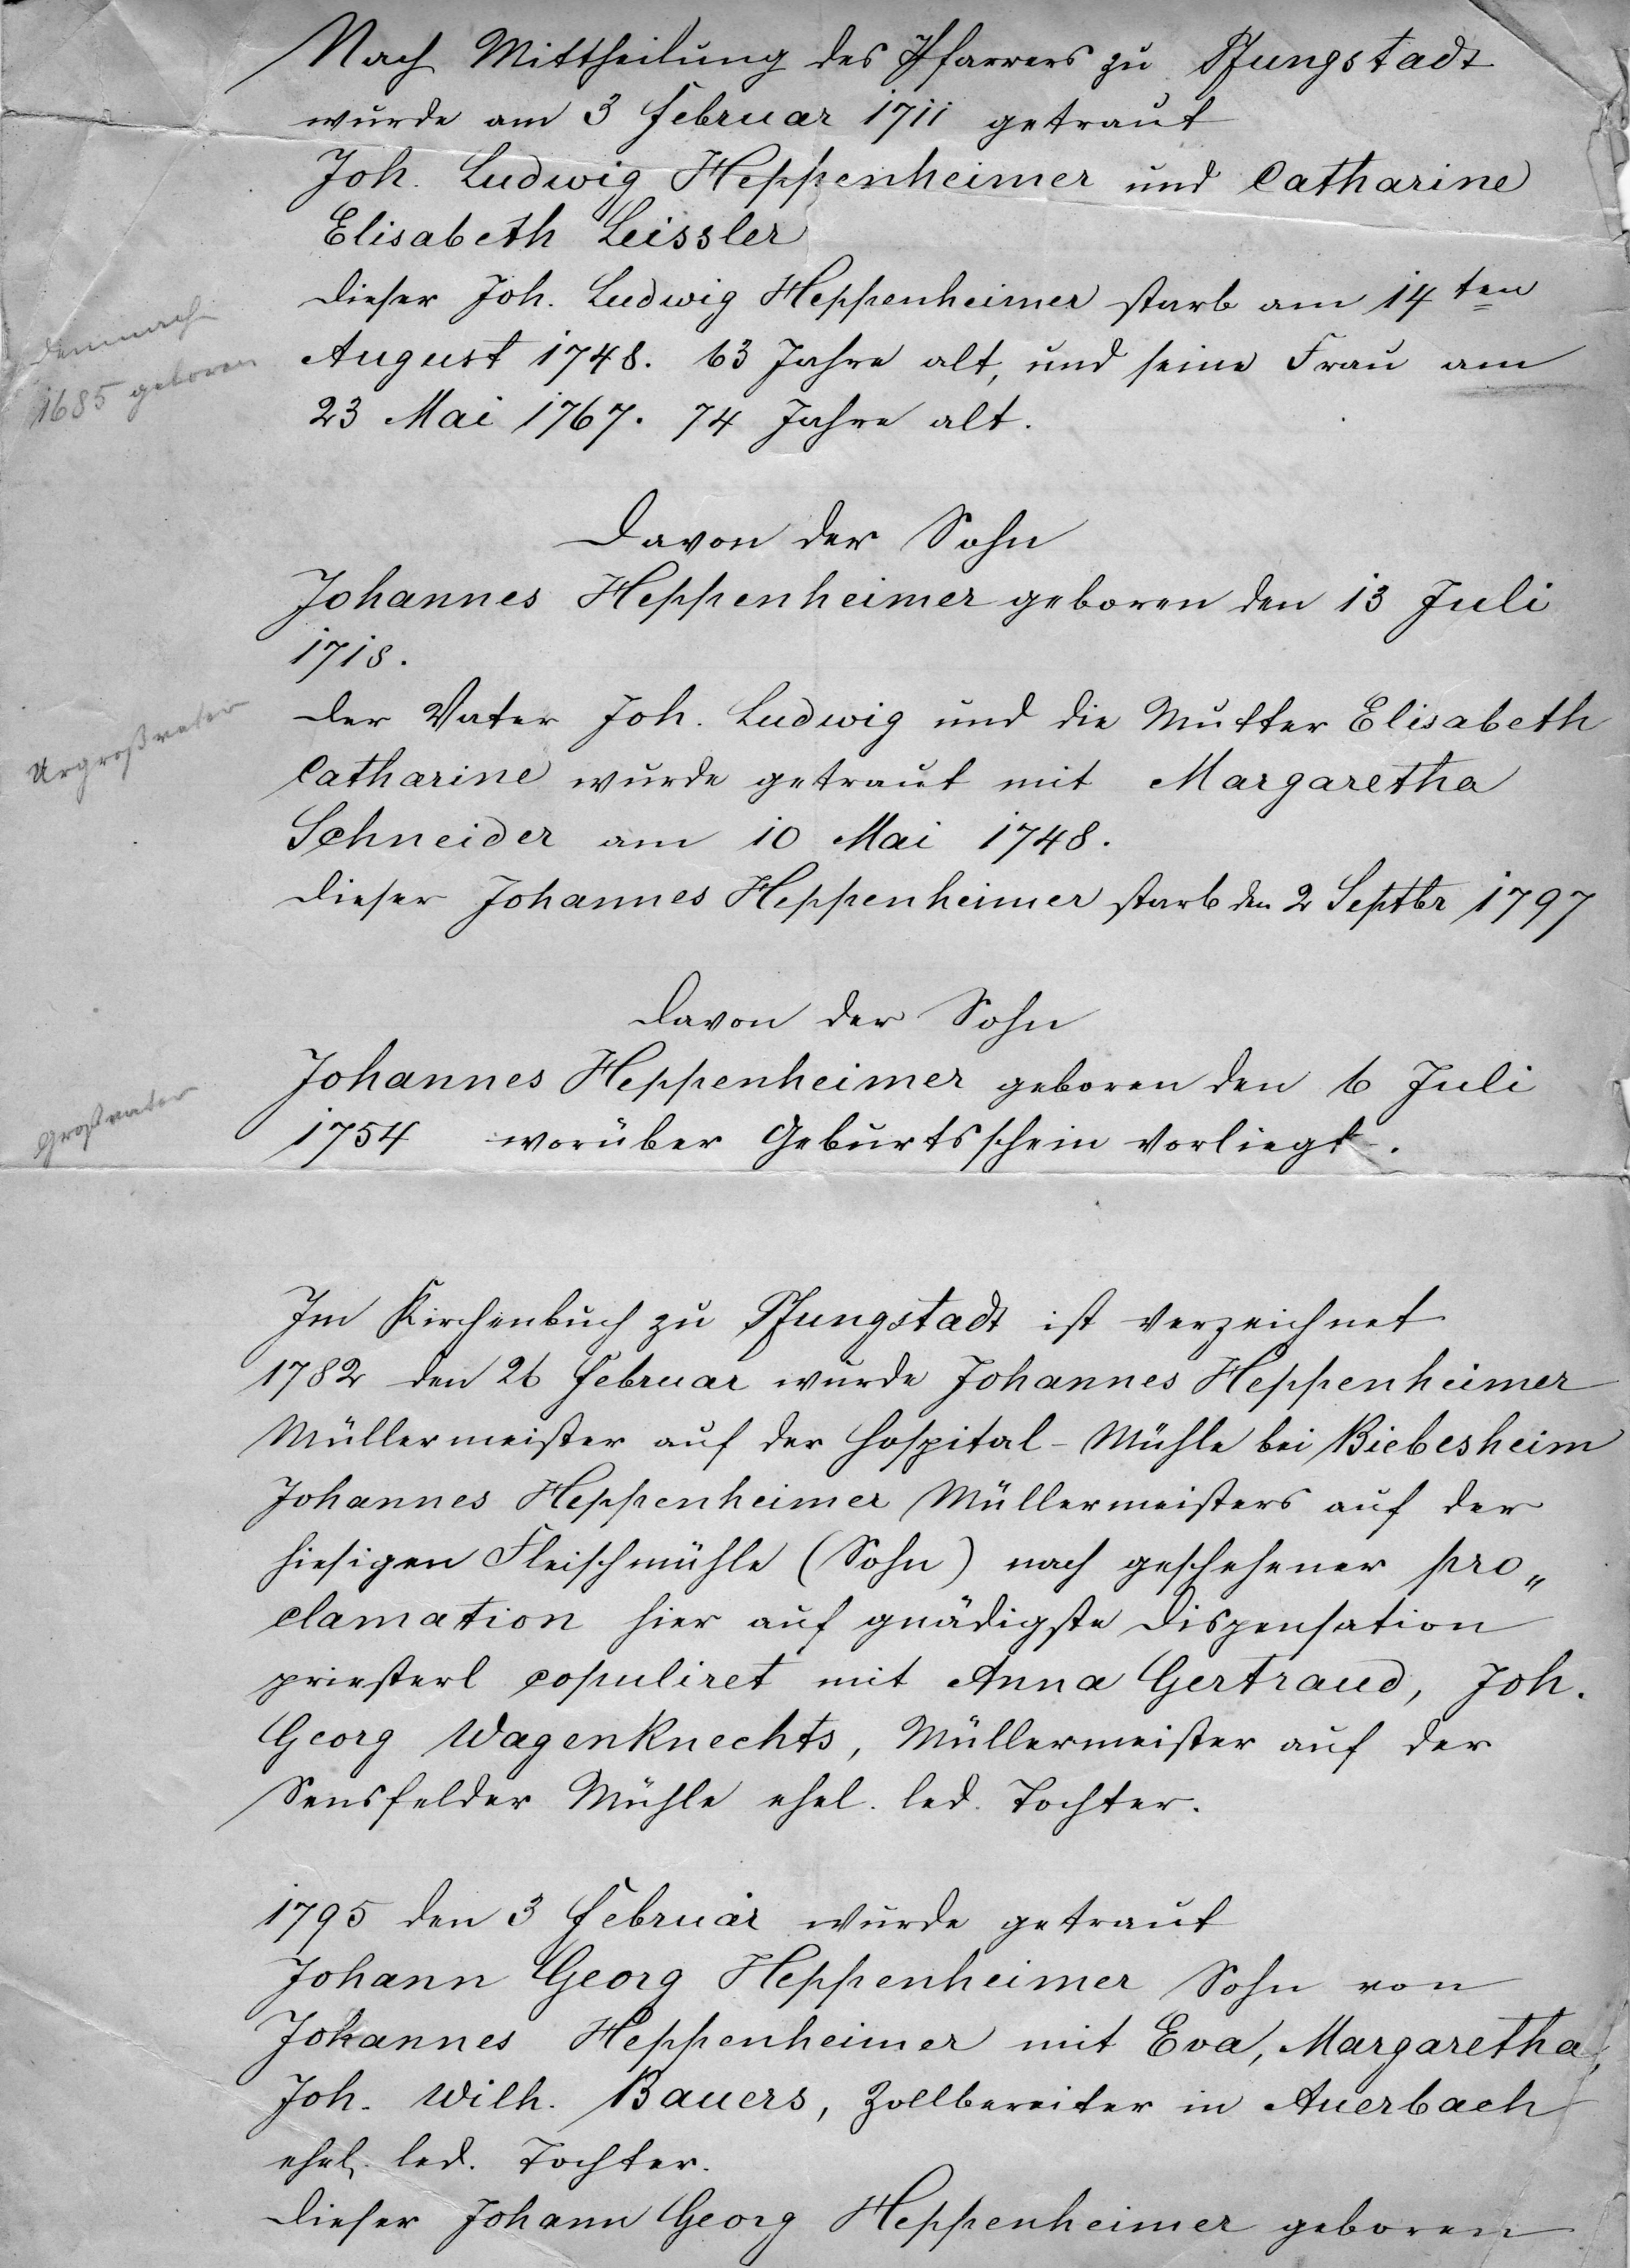 Nach Mittheilung des Pfarrers zu Pfungstadt
wurde am 3 Februar 1711 getraut
Joh. Ludwig Heppenheimer und Catharine
Elisabeth Leissler
Dieser Joh. Ludwig Heppenheimer starb am 14ten
demnach
1685 geboren
August 1748. 63 Jahre alt, und seine Frau am
23 Mai 1767. 74 Jahre alt.
Davon der Sohn
Johannes Heppenheimer geboren den 13 Juli
1718.
Urgroßvater
Der Vater Joh. Ludwig und die Mutter Elisabeth
Catharine wurde getraut mit Margaretha
Schneider am 10 Mai 1748.
Dieser Johannes Heppenheimer starb den 2 Septbr 1797
Davon der Sohn
Großvater
Johannes Heppenheimer geboren den 6 Juli
1754 worüber Geburtsschein vorliegt.
Im Kirchenbuch zu Pfungstadt ist verzeichnet
1782 den 26 Februar wurde Johannes Heppenheimer
Müllermeister auf der Hospital-Mühle bei Biebesheim
Johannes Heppenheimer Müllermeisters auf der
hiesigen Fleischmühle (Sohn) nach geschehener pro„
clamation hier auf gnädigste Dispensation
priesterl copuliret mit Anna Gertraud, Joh.
Georg Wagenknechts, Müllermeister auf der
Sensfelder Mühle ehel. led. Tochter.
1795 den 3 Februar wurde getraut
Johann Georg Heppenheimer Sohn von
Johannes Heppenheimer mit Eva, Margaretha,
Joh. Wilh. Bauers, Zollbereiter in Auerbach
ehel. led. Tochter.
Dieser Johann Georg Heppenheimer geboren